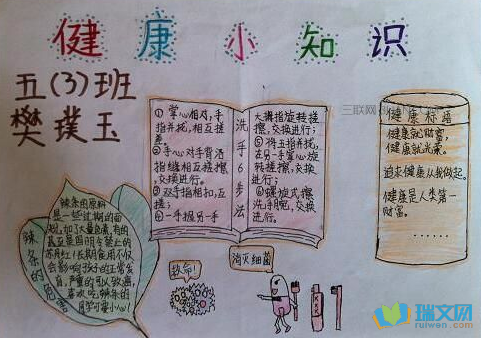 健康小知识
五(3)班
樊璞玉
洗手6步法
① 掌心相对,手
指并拢,相互搓
擦。
②手心对手背沿
指缝相互搓擦,
交换进行。
③双手指相扣,互
搓;
④一手握另一手
大拇指旋转搓
擦,交换进行;
⑤将五指并拢,
在另一手掌心旋
转搓擦,交换
进行;
⑥螺旋式擦
洗手腕,交换
进行。
健康标语
健康就是财富,
健康就光荣。
追求健康从我做起。
健康是人类第一
财富。
……
辣条的危害
辣条的原料
是一些过期的面
粉,加了大量色素,有的
甚至是国明令禁止的
苏丹红!长期食用不仅
会影响孩子的正常发
育,严重的引人致癌,
喜欢吃辣条的
同学可要小心!
救命!
消灭细菌
三联网
瑞文网
ruiwen.com